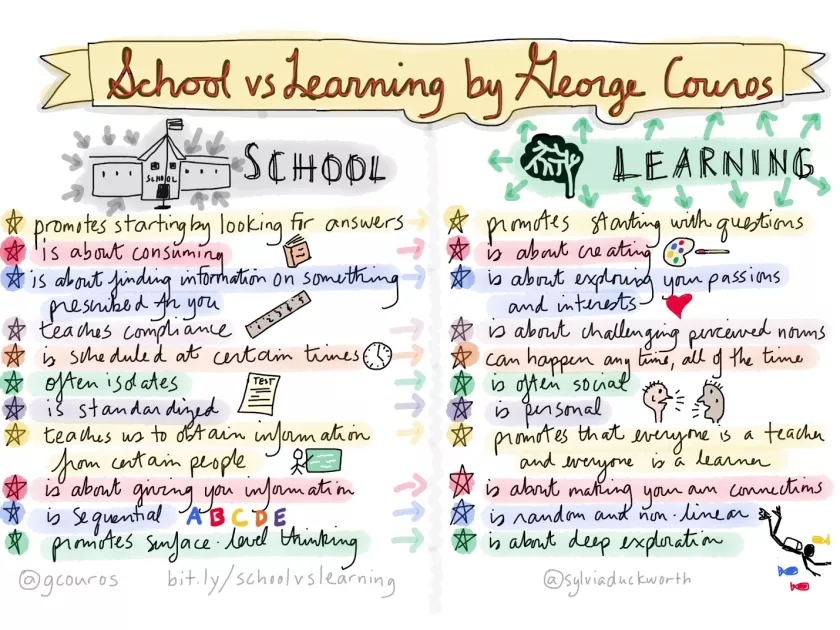 School vs Learning by George Couros
SCHOOL
SCHOOL
promotes starting by looking for answers
is about consuming
is about finding information on something
prescribed for you
teaches compliance
1 2 3 4 5 6
is scheduled at certain times
often isolates
TEST
is standardized
teaches us to obtain information
from certain people
is about giving you information
is sequential ABCDE
promotes surface-level thinking
@gcouros bit.ly/schoolvslearning
LEARNING
promotes starting with questions
is about creating
is about exploring your passions
and interests
is about challenging perceived norms
can happen any time, all of the time
is often social
is personal
promotes that everyone is a teacher
and everyone is a learner
is about making your own connections
is random and non-linear
is about deep exploration
@sylviaduckworth